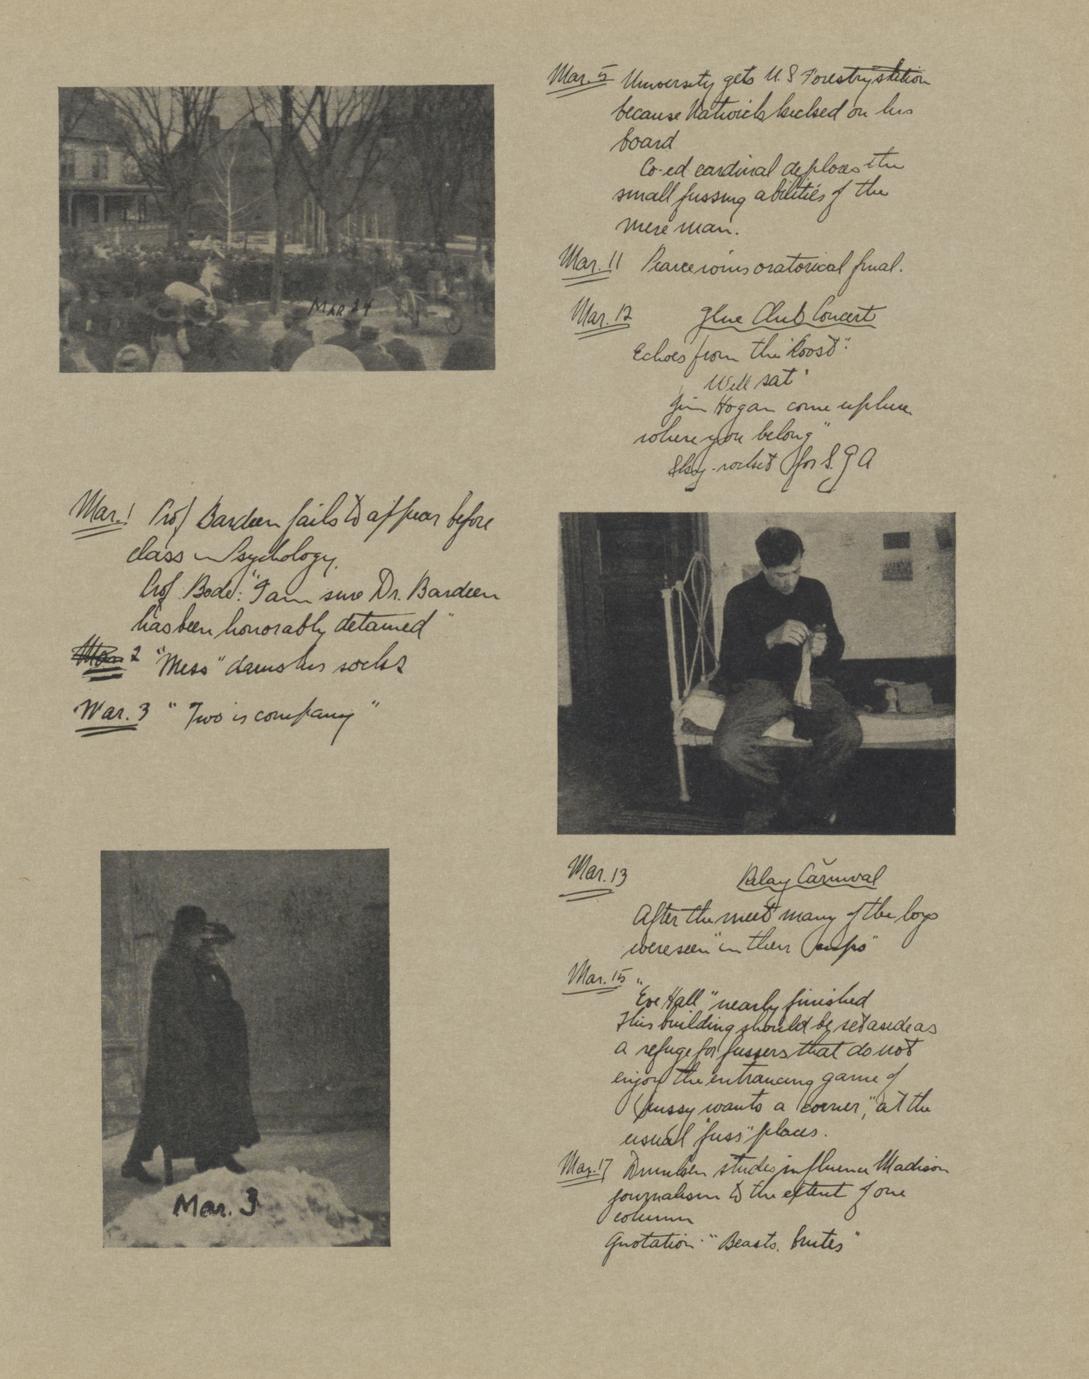 Mar 24
Mar. 1 Prof Bardeen fails to appear before
class in Psychology.
Prof. Bode: "I am sure Dr. Bardeen
has been honorably detained"
Mar. 2 "Mess" darns his socks
Mar. 3 "Two is company"
Mar. 3
Mar. 5 University gets U.S Forestry station
because Natwick kicked on his
board
Co-ed cardinal deplores the
small fussing abilities of the
mere man.
Mar. 11 Pearce wins oratorical final.
Mar. 12 Glue Club Concert
Echoes from the "Roost":
Well sat"
Jim Hogan come up here
where you belong"
Sky-rocket for S. G A
Mar. 13 Relay Carnival
After the meet many of the boys
were seen "in their cups"
Mar. 15
"Eve Hall" nearly finished
This building should be set aside as
a refuge for fussers that do not
enjoy the entrancing game of
"pussy wants a corner," at the
usual "fuss" places.
Mar. 17 Drunken studes influence Madison
journalism to the extent of one
column
Quotation: "Beasts, brutes"